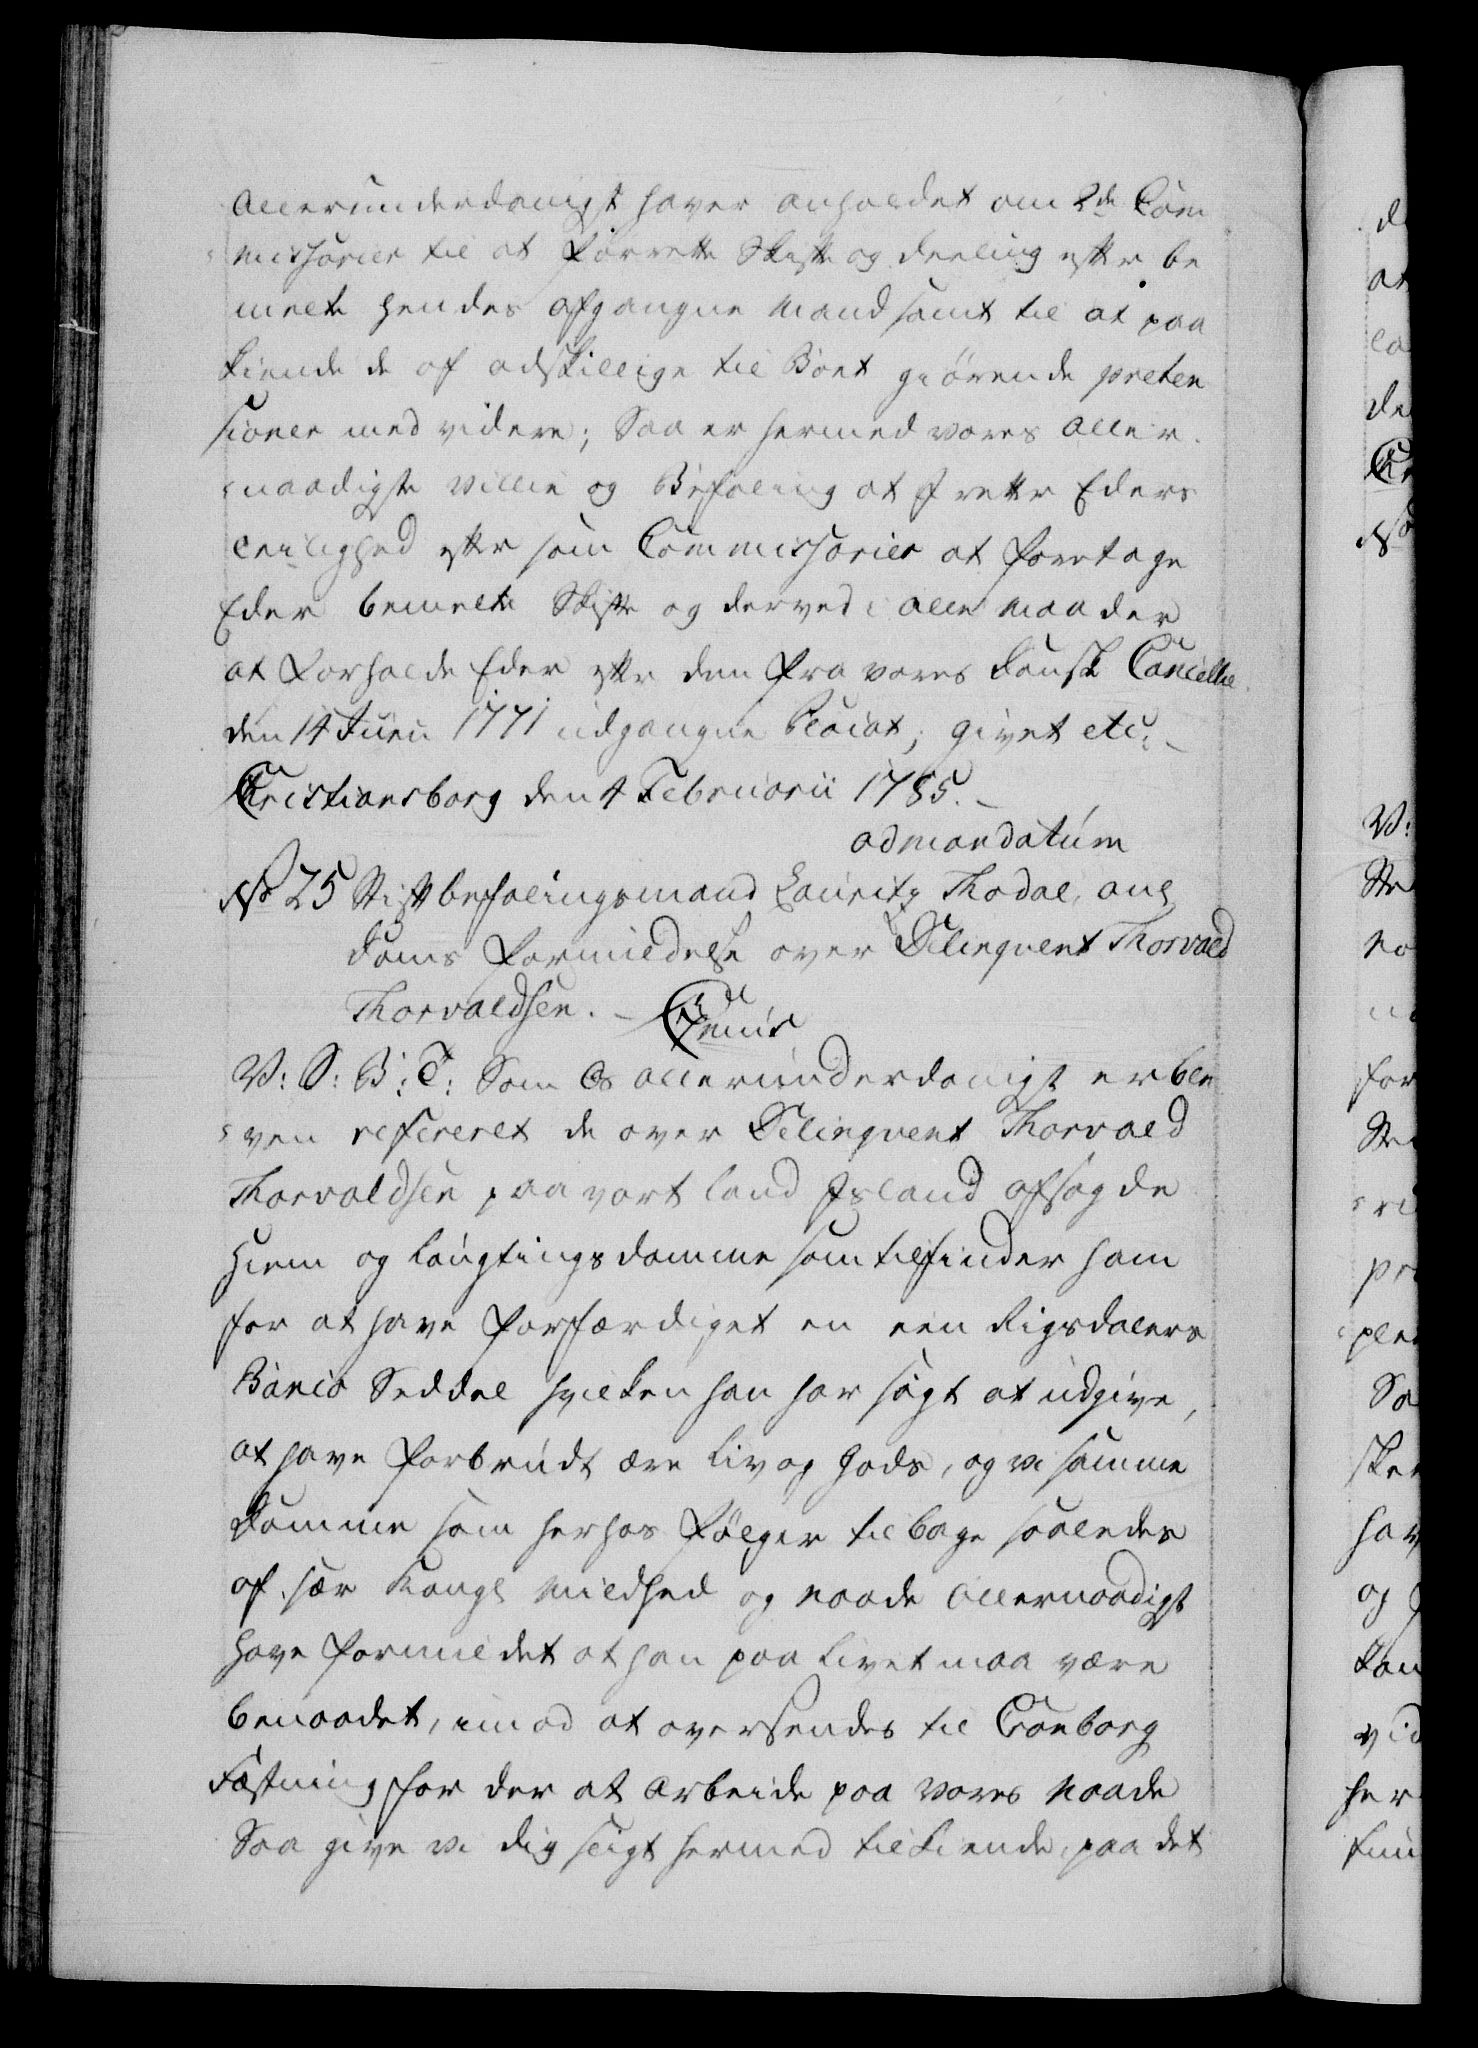 Allerunderdanigst haver anholdet om 2de Com
missarier til at forrette Skifte og deeling efter be
meelte hendes afgangne Mand samt til at paa
kiende de af adskillige til Boet giørende preten
sioner med videre; Saa er hermed vores Aller-
naadigste Villie og Befaling at I rette Eders
leilighed efter som Commissarier at foretage
Eder bemelte Skifte og derved i alle Maader
at forholde Eder efter den fra vores danske Cancellie
den 14 Junii 1771 udgangne Placat; givet etc:
Christiansborg den 4 Februarii 1785.
ad mandatum
No 25 Stiftbefalingsmand Lauritz Thodal, ang
Doms Formildelse over Delinqvent Thorvald
Thorvaldsen. –
V: S: B: T: Som Os allerunderdanigst er ble
ven refereret de over Delinqvent Thorvald
Thorvaldsen paa vort land Island afsagde
Hiem og Laugtings domme som tilfinder ham
for at have forfærdiget en een Rigsdalers
Banco Seddel hvilken han har søgt at udgive,
at have forbrudt ære liv og Gods, og vi samme
Domme som herhos følger tilbage saaledes
af sær Kongl Mildhed og Naade Allernaadigst
have formildet at han paa Livet maa være
benaadet, imod at oversendes til Cronborg
Fæstning for der at arbeide paa vores Naade
Saa give vi dig sligt hermed tilkiende, paa det